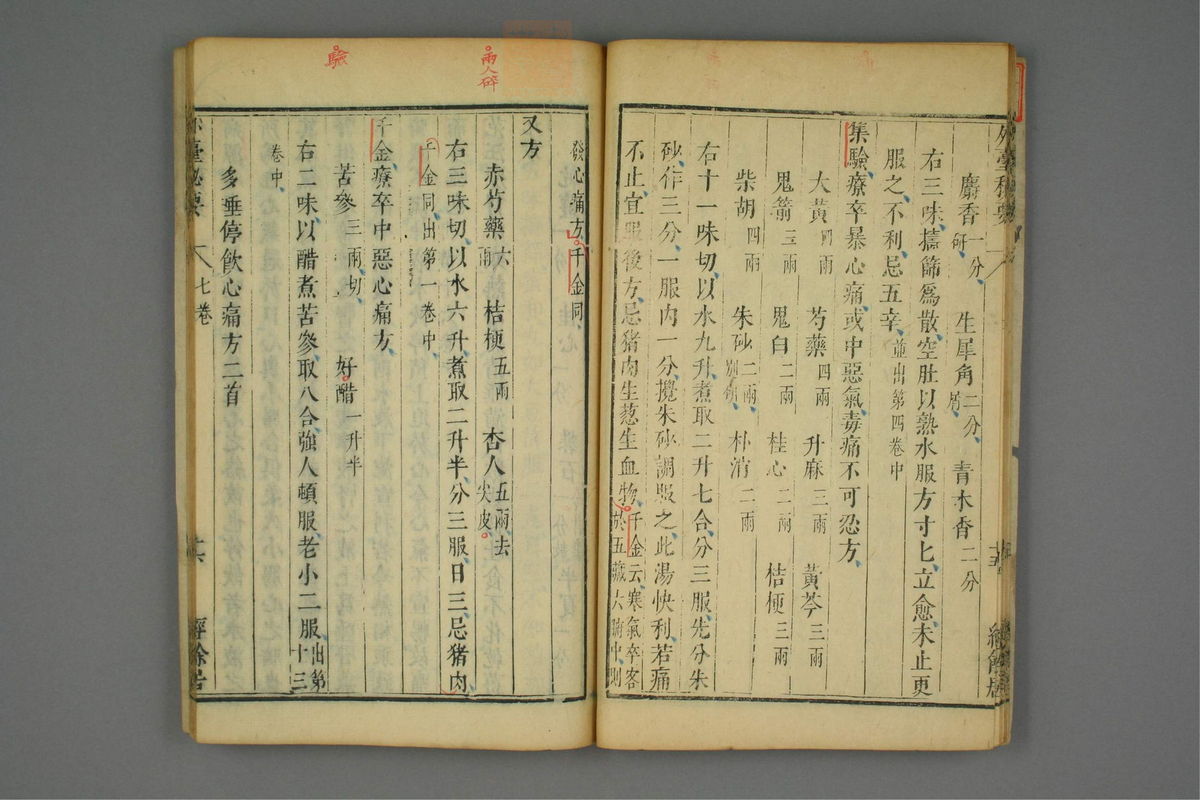 外臺秘要
麝香一分研 生犀角二分屑 青木香二分
右三味擣篩爲散空肚以熟水服方寸匕立愈未止更
服之不利忌五辛並出第四卷中
集驗療卒暴心痛或中惡氣毒痛不可忍方
大黃四兩 芍藥四兩 升麻三兩 黃芩三兩
鬼箭三兩 鬼臼二兩 桂心二兩 桔梗三兩
柴胡四兩 朱砂二兩別研 朴消二兩
右十一味切以水九升煮取二升七合分三服先分朱
砂作三分一服內一分攪朱砂調服之此湯快利若痛
不止宜服後方忌猪肉生葱生血物千金云寒氣卒客於五藏六腑中則
發心痛方千金同
又方
赤芍藥六兩 桔梗五兩 杏人五兩去尖皮
右三味切以水六升煮取二升半分三服日三忌猪肉
千金同出第一卷中
千金療卒中惡心痛方
苦參三兩切 好醋一升半
右二味以醋煮苦參取八合強人頓服老小二服出第十三
卷中
多唾停飲心痛方二首
外臺秘要
七卷
經餘居
兩人碎
驗